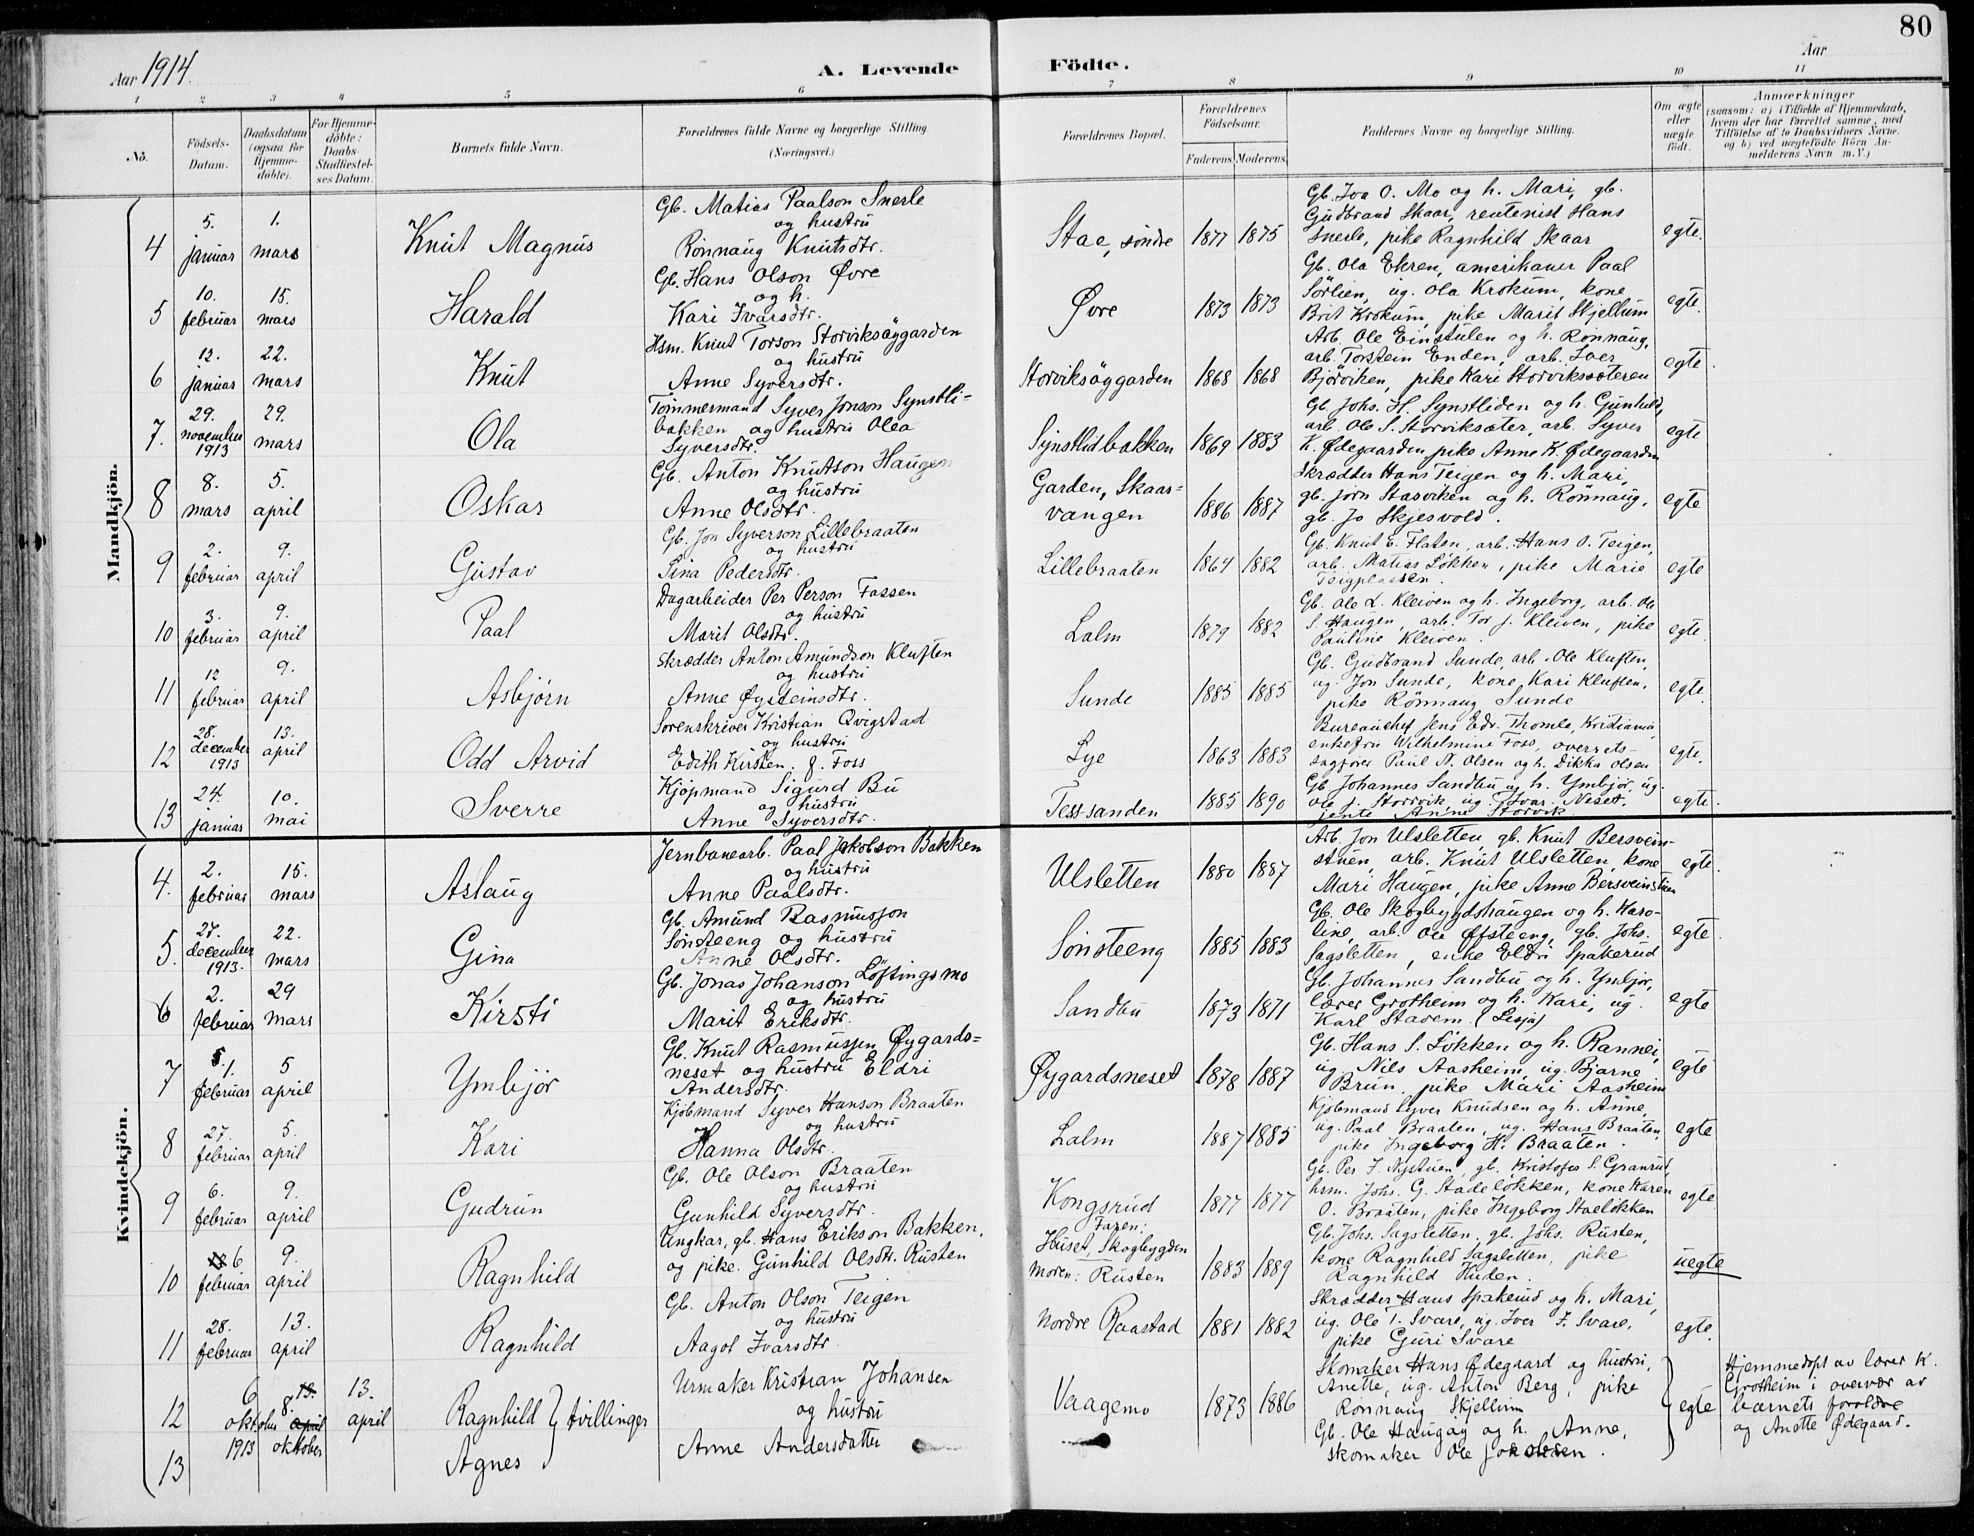 80
Aar 1914.
A. Levende Födte.
Aar
1 2 3 4 5 6 7 8 9 10 11
No.
Födsels-Datum.
Daabsdatum (ogsaa for Hjemme-döbte).
For Hjemme-döbte: Daabs-Stadfæstel-ses Datum.
Barnets fulde Navn.
Forældrenes fulde Navne og borgerlige Stilling.
(Næringsvei.)
Forældrenes Bopæl.
Forældrenes Födselsaar.
Faderens. Moderens.
Faddernes Navne og borgerlige Stilling.
Om ægte eller uægte født.
Anmærkninger
(saasom: a) i Tilfælde af Hjemmedaab, hvem der har forrettet samme, med Tilföielse af to Daabsvidners Navne, og b) ved uægtefödte Börn An-melderens Navn m. V.)
Mandkjön.
4 5. januar 1. mars Knut Magnus
Gb. Matias Paalson Snerle
og hustru
Rönnaug Knutsdtr.
Stae, söndre 1877 1875
Gb. Iva O. Mo og h. Mari, gb.
Gudbrand Skaar, rentenist Hans
Snerle, pike Ragnhild Skaar
egte.
5 10. februar 15. mars Harald
Gb. Hans Olson Øvre
og h.
Kari Ivarsdtr.
Øvre 1873 1873
Gb. Ola Ekren, amerikaner Paal
Sörlien, ug. Ola Krokum, kone
Brit Krokum, pike Marit Skjellum
egte.
6 12. januar 22. mars Knut
Hsm. Knut Torson Storviksöygarden
og hustru
Anne Syversdtr.
Storviksöygarden 1868 1868
Arb. Ole Einstulen og h. Rönnaug,
arb. Torstein Enden, arb. Iver
Björviken, pike Kari Storvikssæteren
egte.
7. 29. november 1913 29. mars Ola
Tömmermand Syver Jonson Synstli-
bakken og hustru Olea
Syversdtr.
Synstlibakken 1869 1883
Gb. Johs. H. Synstliden og h. Gunhild,
arb. Ole S. Storviksæter, arb. Syver
K. Ødegaarden, pike Anne K. Ødegaarden
egte
8 8. mars 5. april Oskar
Gb. Anton Knutson Haugen
og hustru
Anne Olsdtr.
Garden, Skaar-
vangen 1886 1887
Skrædder Hans Teigen og h. Mari,
gb. Jörn Stasviken og h. Rönnaug,
gb. Jo Skjesvold.
egte
9 2. februar 9. april Gustav
Gb. Jon Syverson Lillebraaten
og hustru
Sina Pedersdtr.
Lillebraaten 1864 1882
Gb. Knut E. Flaten, arb. Hans O. Teigen,
arb. Matias Løkken, pike Marie
Teigplassen.
egte
10 3. februar 9. april Paal
Dagarbeider Per Person Fossen
og hustru
Marit Olsdtr.
Lalm 1879 1882
Gb. Ole L. Kleiven og h. Ingeborg, arb. Ole
S. Haugen, arb. Tor J. Kleiven, pike
Pauline Kleiven.
egte.
11 12 februar 9. april Asbjörn
Skrædder Anton Amundson Kluften
og hustru
Anne Øysteinsdtr.
Sunde 1885 1885
Gb. Gudbrand Sunde, arb. Ole Kluften,
ug. Jon Sunde, kone Kari Kluften,
pike Rönnaug Sunde
egte
12 28. december 1913 13. april Odd Arvid
Sorenskriver Kristian Qvigstad
og hustru
Edith Kirsten f. Foss
Lye 1863 1883
Bureauchef Jens Edv. Thomle, Kristiania,
enkefru Wilhelmine Foss, overrets-
sagfører Paul N. Olsen og h. Dikka Olsen
egte.
13 24. januar 10. mai Sverre
Kjöpmand Sigurd Bu
og hustru
Anne Syversdtr.
Tess-sanden 1885 1890
Gb Johannes Sandbu og h. Ymbjör, ug.
Ole J. Storvik, ug. Ivar Neset,
jente Anne Storvik.
egte.
Kvindekjön.
4. 2. februar 15. mars Aslaug
Jernbanearb. Paal Jakobson Bakken
og hustru
Anne Paalsdtr.
Ulsletten 1880 1887
Arb. Jon Ulsletten, gb. Knut Bersvein-
stuen, arb. Knut Ulsletten, kone
Mari Haugen, pike Anne Bersveinstuen
egte.
5. 27. december 1913. 22. mars Gina
Gb. Amund Rasmusson
Sönsteeng og hustru
Anne Olsdtr.
Sönsteeng 1885 1883
Gb. Ole Skogbygdshaugen og h. Karo-
line, arb. Ole Øfsteeng, gb. Johs.
Sagsletten, enke Eldri Spakerud
egte.
6 2. februar 29 mars Kirsti
Gb. Jonas Johanson Löftingsmo
og hustru
Marit Eriksdtr.
Sandbu 1873 1871
Gb. Johannes Sandbu og h. Ymbjör,
lærer Grotheim og h. Kari, ug.
Karl Stavem (Lesja)
egte
7 1. februar 5 april Ymbjör
Gb. Knut Rasmussen Øygards-
neset og hustru Eldri
Andersdtr.
Øygardsneset 1878 1887
Gb. Hans S. Løkken og h. Rannei,
ug. Nils Aasheim, ug. Bjarne
Brun, pike Mari Aasheim
egte
8 27. februar 5. april Kari
Kjöbmand Syver Hanson Braaten
og hustru
Hanna Olsdtr.
Lalm 1887 1885
Kjöbmand Syver Knudsen og h. Anne,
ug. Paal Braaten, ug. Hans Braaten,
pike Ingeborg H. Braaten.
egte
9 6. februar 9. april Gudrun
Gb. Ole Olson Braaten
og hustru
Gunhild Syversdtr.
Kongsrud 1877 1877
Gb. Per J. Nystuen, gb. Kristofer S. Granrud,
hsm. Johs. G. Stadelökken, kone Karen
O. Braaten, pike Ingeborg Staelökken
egte
10 6. februar 9. april Ragnhild
Ungkar, gb. Hans Erikson Bakken,
og pike Gunhild Olsdtr. Rusten
Faren:
Huset, Skogbygden
Moren: Rusten 1883 1889
Gb. Johs. Sagsletten, gb. Johs. Rusten,
kone Ragnhild Sagsletten, pike
Ragnhild Huden.
uegte
11 28. februar 13. april Ragnhild
Gb. Anton Olson Teigen
og hustru
Aagot Ivarsdtr.
Nordre Raastad 1881 1882
Skrædder Hans Spakerud og h. Mari,
ug. Ole T. Svare, ug. Iver J. Svare,
pike Guri Svare
egte.
12 6 oktober 1913 8. april oktober 13. april Ragnhild } tvillinger
13 Agnes
Urmaker Kristian Johansen
og hustru
Anne Andersdatter
Vaagemo 1873 1886
Skomaker Hans Ødegaard og hustru,
Anette, ug. Anton Berg, pike
Rønnaug Skjellum
Gb. Ole Haugøy og h. Anne,
skomaker Ole Jakobsen.
egte
Hjemmedöpt av lærer K.
Grotheim i overvær av
barnets foreldre
og Anette Ødegaard.